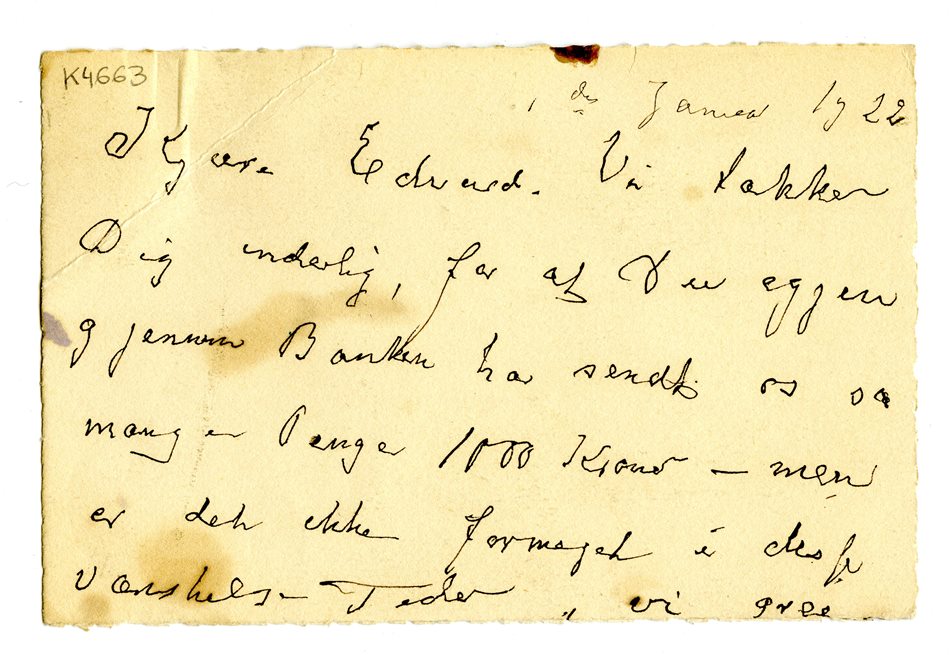 K4663
1 ds Januar 1922
Kjære Edvard. Vi takker
Dig inderlig, for at Du igjen
gjennem Banken har sendt os så
mange Penge 1000 Kroner – men
er det ikke formeget i disse
vanskelige Tider, vi